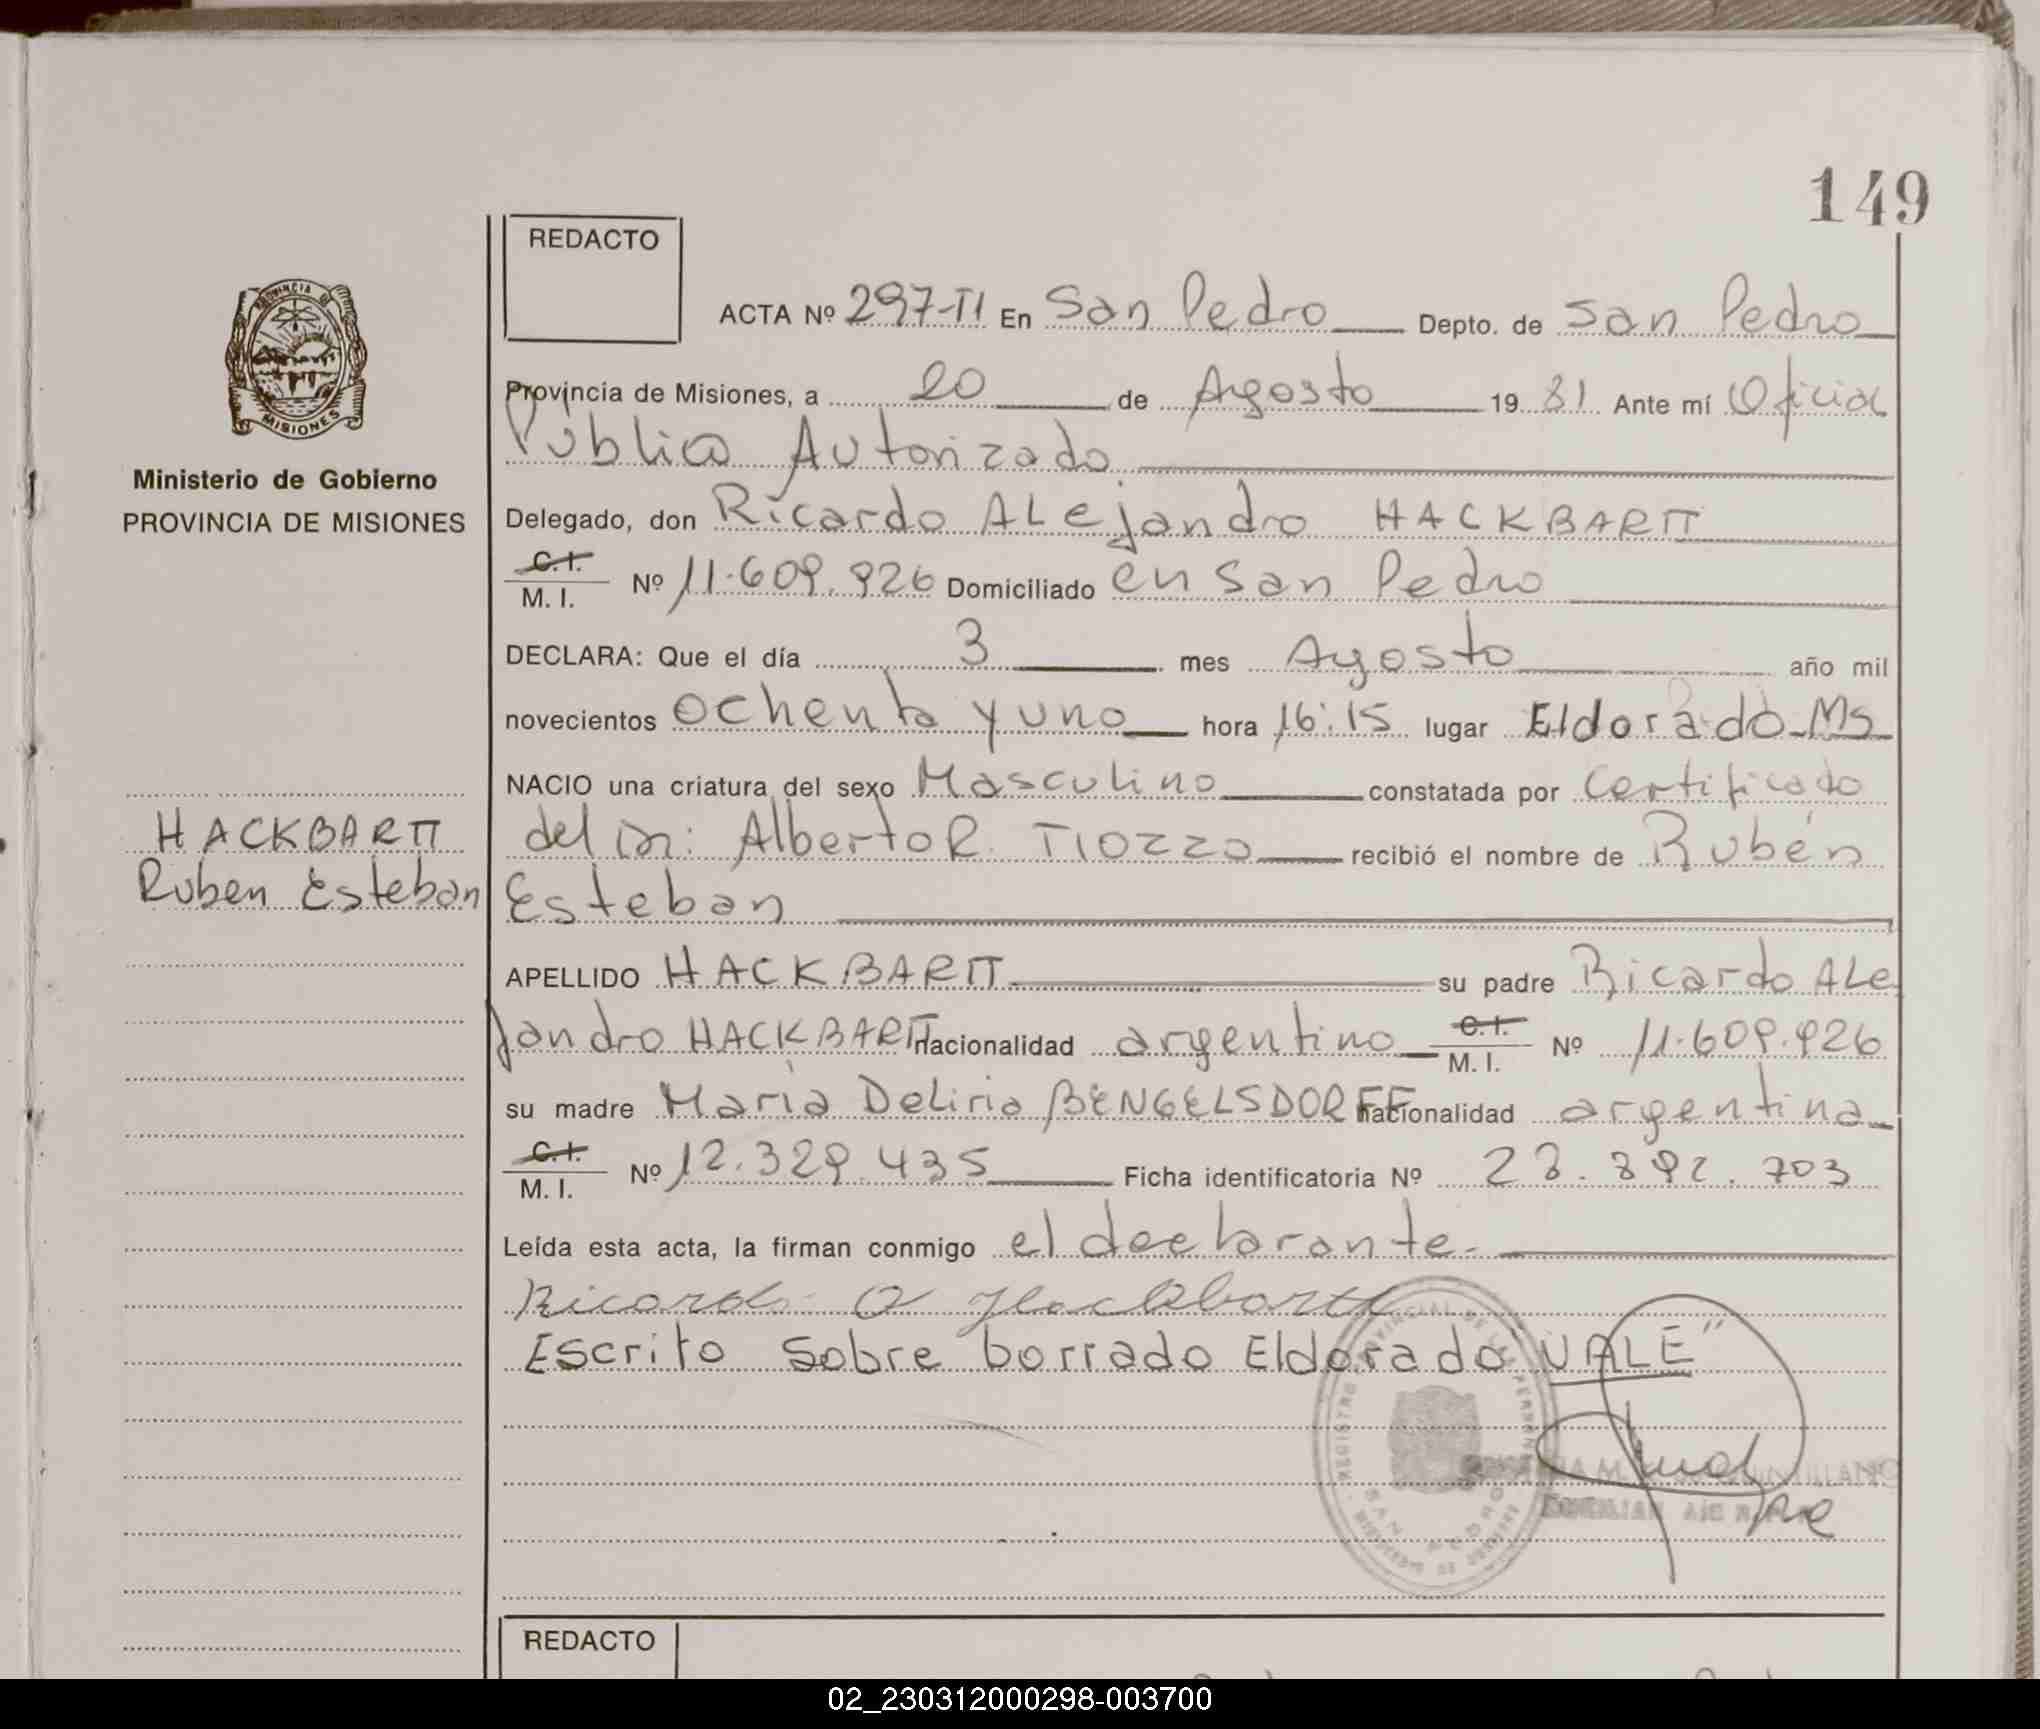 149
REDACTO
ACTA Nº 297-TI En San Pedro Depto. de San Pedro
Provincia de Misiones, a 20 de Agosto 1981 Ante mí Oficial
Público Autorizado
Ministerio de Gobierno
PROVINCIA DE MISIONES
Delegado, don Ricardo ALejandro HACKBARTT
C.I.
M. I. Nº 11.609.926 Domiciliado en San Pedro
DECLARA: Que el día 3 mes Agosto año mil
novecientos ochenta y uno hora 16:15 lugar Eldorado-Ms
NACIO una criatura del sexo Masculino constatada por Certificado
HACKBARTT
del Dr: Alberto R. TIOZZO recibió el nombre de Rubén
Ruben Esteban
Esteban
APELLIDO HACKBARTT su padre Ricardo ALe
jandro HACKBARTT nacionalidad argentino C.I.
M. I. Nº 11.609.926
su madre María Deliria BENGELSDORFF nacionalidad argentina
C.I.
M. I. Nº 12.329.435 Ficha identificatoria Nº 28.892.703
Leída esta acta, la firman conmigo el declarante.
Ricardo A Hackbartt
Escrito Sobre borrado Eldorado "VALE"
REDACTO
02_230312000298-003700